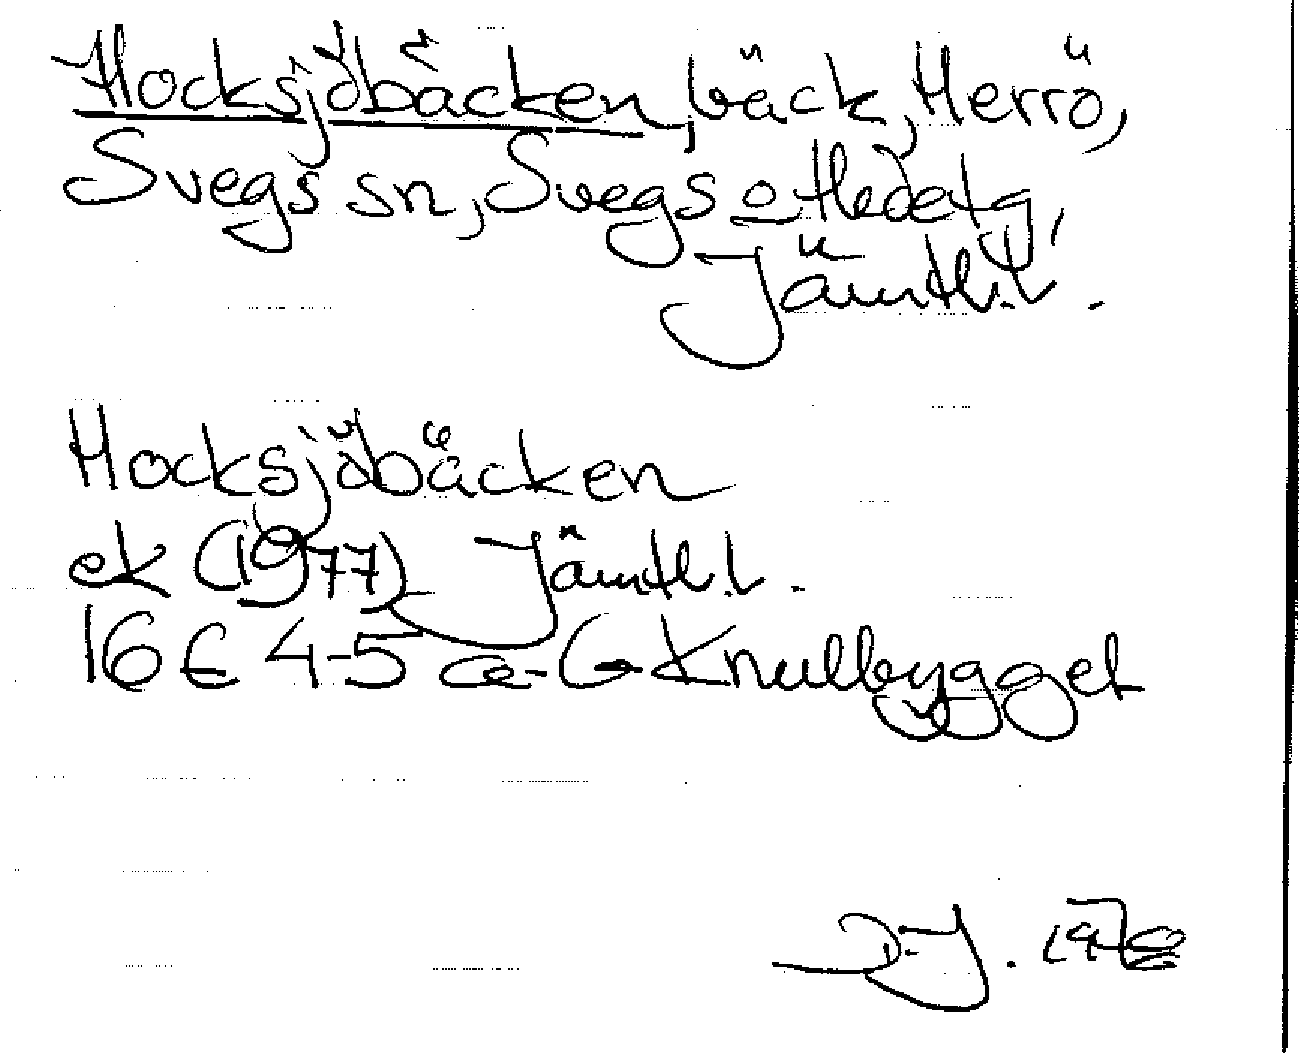 Hocksjöbäcken, bäck, Herrö,
Svegs sn, Svegs o Hedetg,
Jämtl.l.
Hocksjöbäcken
ek (1977) Jämtl.l.
16E 4-5 a-c Knullbygget
J. 197